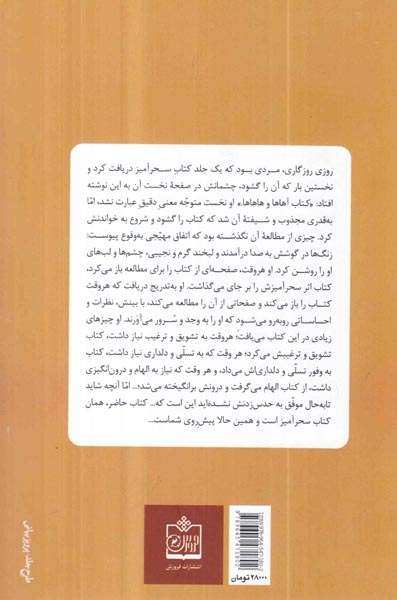 روزی روزگاری، مردی بود که یک جلد کتابِ سحرآمیز دریافت کرد و
نخستین بار که آن را گشود، چشمانش در صفحهٔ نخست آن به این نوشته
افتاد: «کتاب آهاها و هاهاها» او نخست متوجّه معنی دقیقِ عبارت نشد، امّا
به‌قدری مجذوب و شیفتهٔ آن شد که کتاب را گشود و شروع به خواندنش
کرد. چیزی از مطالعهٔ آن نگذشته بود که اتفاق مهیّجی به‌وقوع پیوست:
زنگ‌ها در گوشش به صدا درآمدند و لبخند گرم و نجیبی، چشم‌ها و لب‌های
او را روشن کرد. او هروقت، صفحه‌ای از کتاب را برای مطالعه باز می‌کرد،
کتاب اثر سحرآمیزش را بر جای می‌گذاشت. او به‌تدریج دریافت که هروقت
کتاب را باز می‌کند و صفحاتی از آن را مطالعه می‌کند، با بینش، نظرات و
احساساتی روبه‌رو می‌شود که او را به وجد و سُرور می‌آوَرند. او چیزهای
زیادی در این کتاب می‌یافت؛ هروقت به تشویق و ترغیب نیاز داشت، کتاب
تشویق و ترغیبش می‌کرد؛ هر وقت که به تسلّی و دلداری نیاز داشت، کتاب
به وفور تسلّی و دلداری‌اش می‌داد، و هر وقت که نیاز به الهام و درون‌انگیزی
داشت، از کتاب الهام می‌گرفت و درونش برانگیخته می‌شد؛... امّا آنچه شاید
تابه‌حال موفّق به حدس‌زدنش نشده‌اید این است که... کتاب حاضر، همان
کتاب سحرآمیز است و همین حالا پیش‌روی شماست...
فروزش
انتشارات فروزش
۲۸۰۰۰ تومان